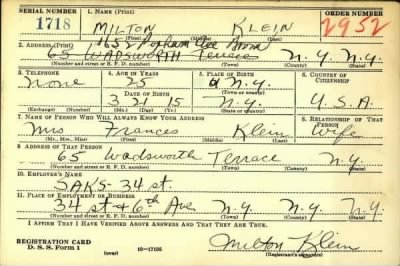 SERIAL NUMBER 1. NAME (Print) ORDER NUMBER
1718 MILTON KLEIN 2952
(First) (Middle) (Last)
1652 Popham Ave Bronx
2. ADDRESS (Print)
65 WADSWORTH Terrace N.Y. N.Y.
(Number and street or R. F. D. number) (Town) (County) (State)
3. TELEPHONE 4. AGE IN YEARS 5. PLACE OF BIRTH 6. COUNTRY OF CITIZENSHIP
None 25 N.Y.
DATE OF BIRTH (Town or county)
3 21 15 N.Y. U.S.A.
(Exchange) (Number) (Mo.) (Day) (Yr.) (State or country)
7. NAME OF PERSON WHO WILL ALWAYS KNOW YOUR ADDRESS 8. RELATIONSHIP OF THAT PERSON
Mrs Frances Klein Wife
(Mr., Mrs., Miss) (First) (Middle) (Last)
9. ADDRESS OF THAT PERSON
65 Wadsworth Terrace N.Y.
(Number and street or R. F. D. number) (Town) (County) (State)
10. EMPLOYER'S NAME
SAKS-34 st.
11. PLACE OF EMPLOYMENT OR BUSINESS
34 st & 6th Ave N.Y. N.Y. N.Y.
(Number and street or R. F. D. number) (Town) (County) (State)
I AFFIRM THAT I HAVE VERIFIED ABOVE ANSWERS AND THAT THEY ARE TRUE.
REGISTRATION CARD
D. S. S. Form 1 (over) 16—17105 Milton Klein
(Registrant's signature)